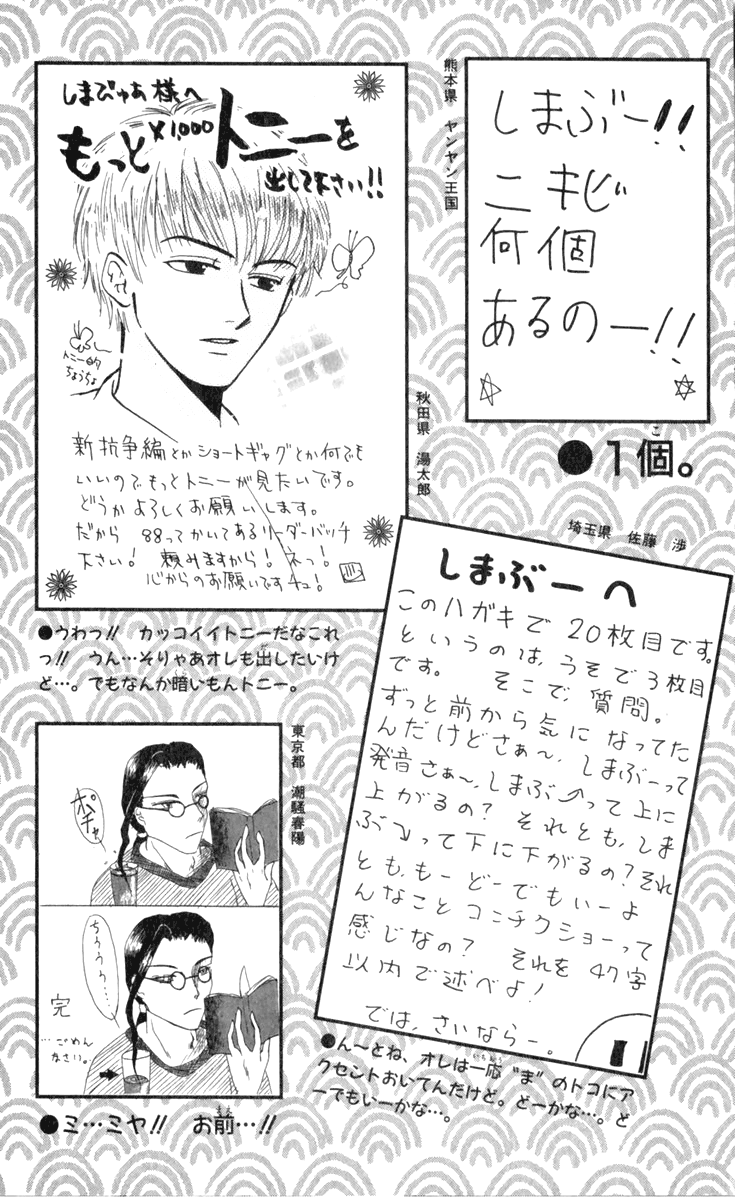 熊本県 ヤンヤン王国
しまぶー!!
ニキビ
何個
あるのー!!
●1個。
こ
しまぴゅあ様へ
もっと¥1,000トニーを
出して下さい!!
トニー的
ちょうちょ
新抗争編とかショートギャグとか何でも
いいので、もっとトニーが見たいです。
どうかよろしくお願いします。
だから 88ってかいてあるリーダーバッチ
下さい! 頼みますから! ネっ!
心からのお願いですチュ!
秋田県 湯太郎
●うわっ!! カッコイイトニーだなこれ
っ!! うん…そりゃあオレも出したいけ
ど…。でもなんか暗いもんトニー。
埼玉県 佐藤 渉
しまぶーへ
このハガキで20枚目です。
というのは、うそで3枚目
です。 そこで、質問。
ずっと前から気になってた
んだけどさぁ~、しまぶーって
発音さぁ~、しまぶ↗って上に
上がるの? それとも、しま
ぶ↘って下に下がるの?それ
とも、もーどーでもいーよ
んなことコンチクショーって
感じなの? それを47字
以内で述べよ!
では、さいならー。
●ん~とね、オレは一応“ま”のトコにア
いちおう
クセントおいてんだけど。どーかな…。ど
ーでもいーかな…。
東京都 潮騒春陽
ポチャ
ちゅうぅぅ…
完
…ごめん
なさい。
●ミ…ミヤ!! お前…!!
まえ